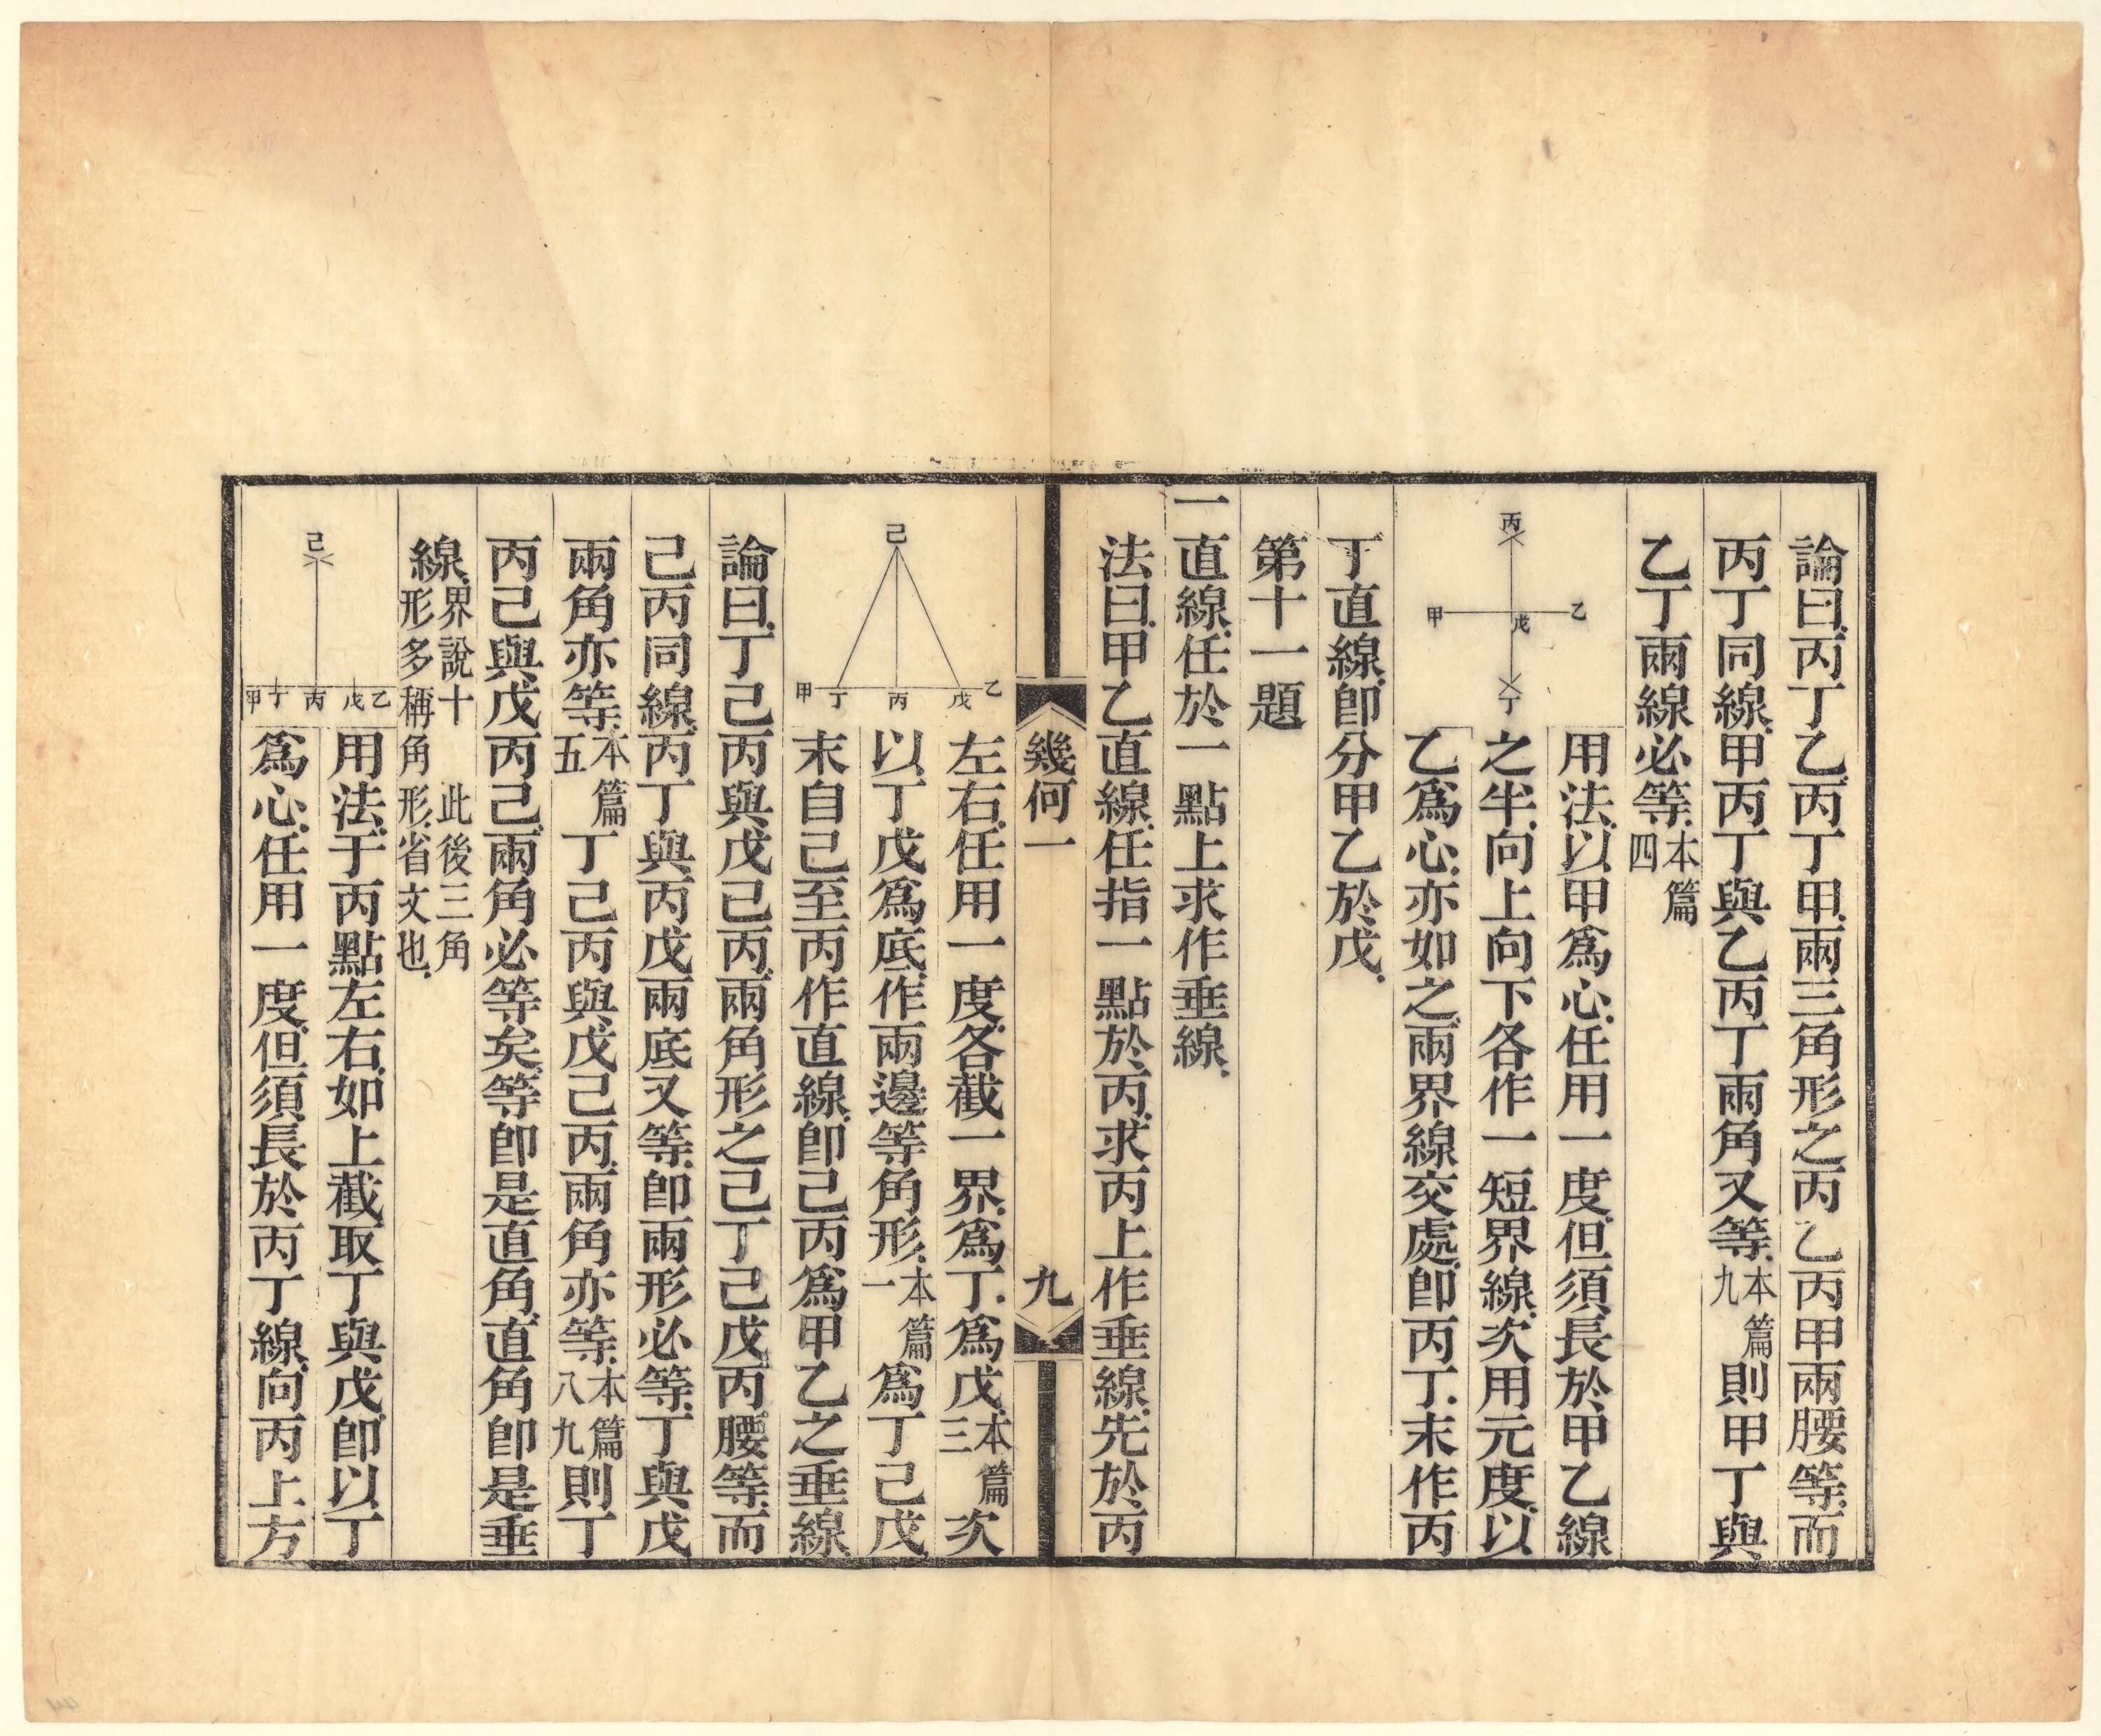 論曰丙丁乙丙丁甲兩三角形之丙乙丙甲兩腰等而
丙丁同線甲丙丁與乙丙丁兩角又等本篇九則甲丁與
乙丁兩線必等本篇四
丙
甲 戊 乙
丁
用法以甲爲心任用一度但須長於甲乙線
之半向上向下各作一短界線次用元度以
乙爲心亦如之兩界線交處卽丙丁末作丙
丁直線卽分甲乙於戊
第十一題
一直線任於一點上求作垂線
法曰甲乙直線任指一點於丙求丙上作垂線先於丙
幾何一 九
己
甲 丁 丙 戊 乙
左右任用一度各截一界爲丁爲戊本篇三次
以丁戊爲底作兩邊等角形本篇一爲丁己戊
末自己至丙作直線卽己丙爲甲乙之垂線
論曰丁己丙與戊己丙兩角形之己丁己戊丙腰等而
己丙同線丙丁與丙戊兩底又等卽兩形必等丁與戊
兩角亦等本篇五丁己丙與戊己丙兩角亦等本篇八九則丁
丙己與戊丙己兩角必等矣等卽是直角直角卽是垂
線界說十 此後三角形多稱角形省文也
己
甲 丁 丙 戊 乙
用法于丙點左右如上截取丁與戊卽以丁
爲心任用一度但須長於丙丁線向丙上方